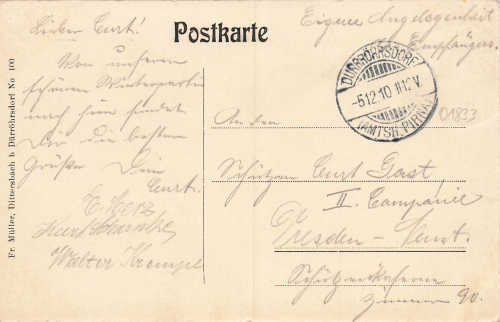 Postkarte
Lieber Curt!
Von unserer
schönen Winterpartie
nach hier sendet
Dir die besten
Grüße Dein
Curt.
E. Merz
Kurt
Walter Krempel
Eigene Angelegenheit
Empfängers.
DÜRRRÖHRSDORF
-5.12.10. 11-12V.
(AMTSH. PIRNA)
01833
An den
Schützen Curt Gast,
II. Companie
Dresden-Neust.
Schützenkaserne
Zimmer 90.
Fr. Müller, Dittersbach b Dürröhrsdorf No 100